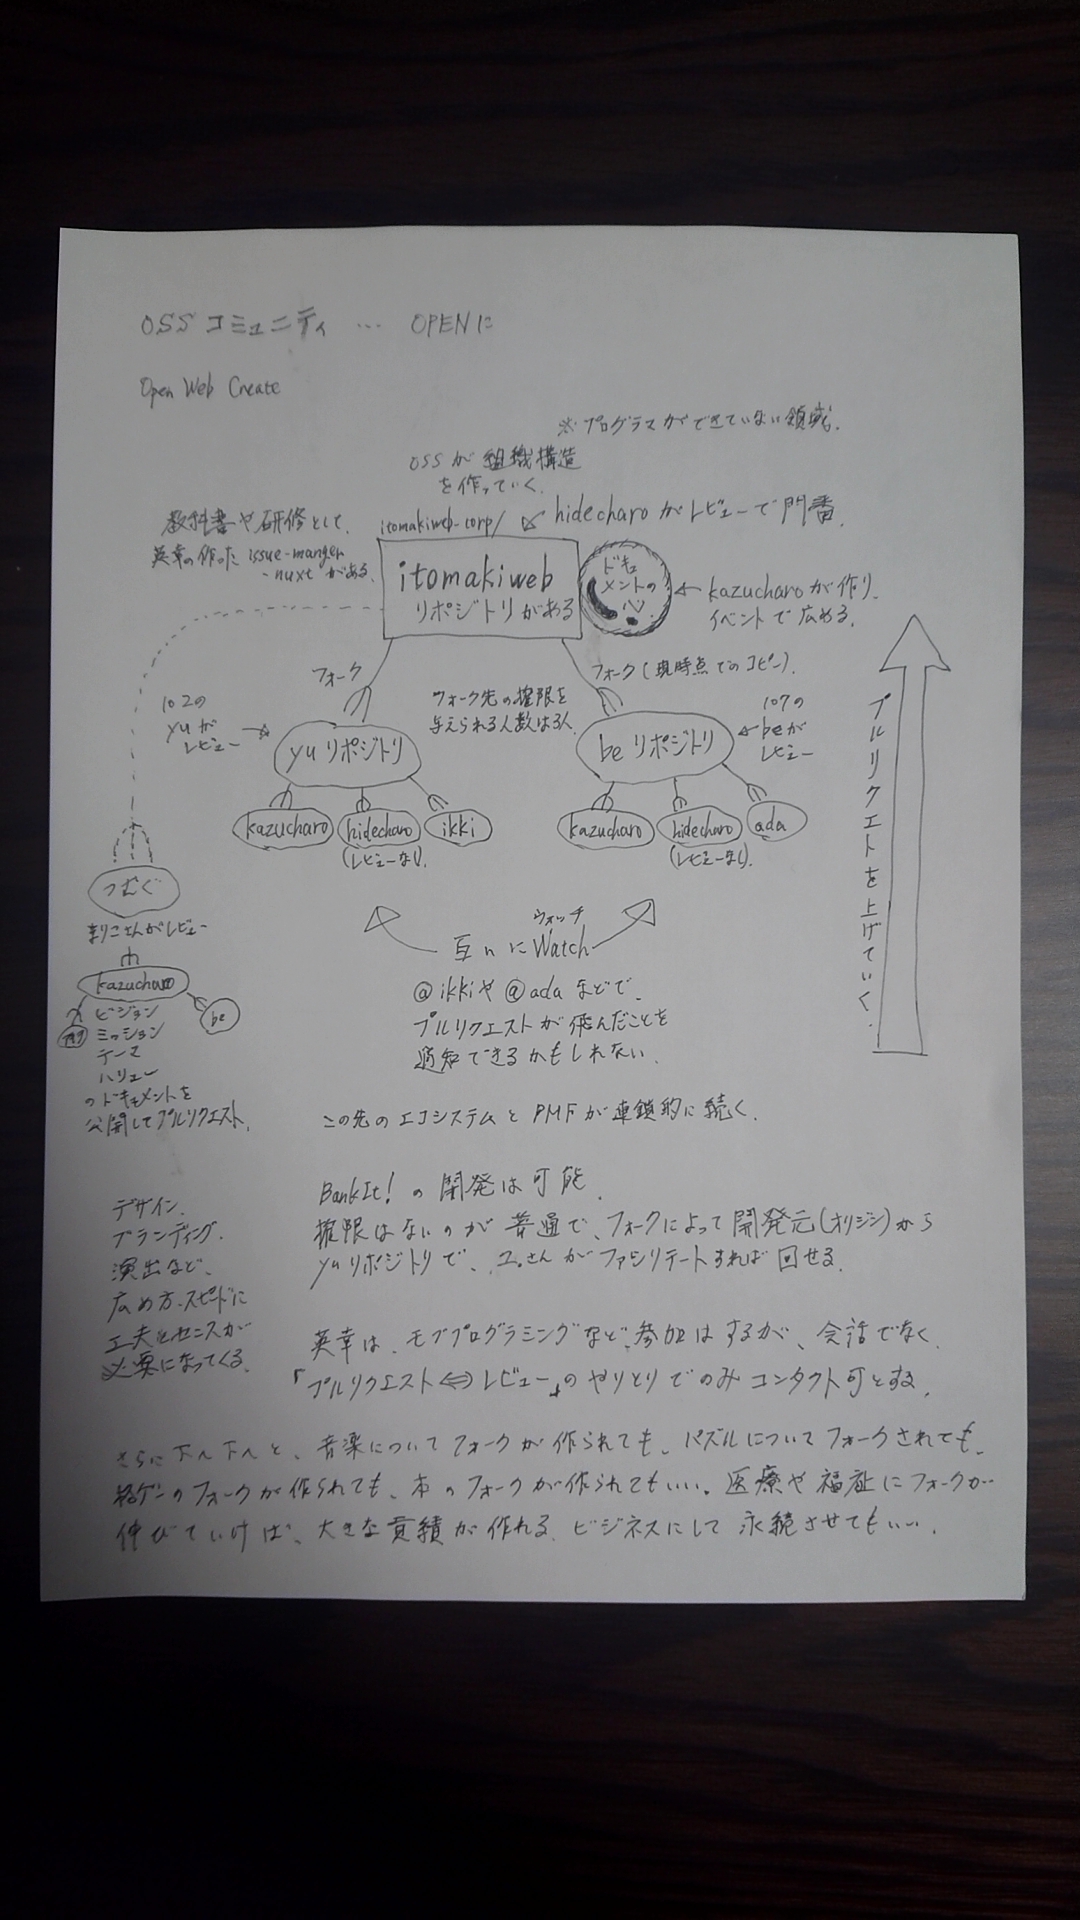 OSS コミュニティ … OPENに
Open Web Create
※プログラマができていない領域.
OSSが組織構造
を作っていく.
教科書や研修として、
英幸の作った issue-manger
-nuxtがある.
itomakiweb-corp/
hidecharoがレビューで門番.
itomakiweb
リポジトリがある
ドキュ
メントの
心.
kazucharoが作り、
イベントで広める.
フォーク
フォーク(現時点でのコピー).
フォーク先の権限を
与えられる人数は3人.
102の
yuが
レビュー
yuリポジトリ
kazucharo
hidecharo
(レビューなし).
ikki
107の
beが
レビュー
beリポジトリ
kazucharo
hidecharo
(レビューなし).
ada
プルリクエストを上げていく.
つむぐ
まりこさんがレビュー
kazucharo
be
ビジョン
ミッション
テーマ
バリュー
のドキュメントを
公開してプルリクエスト.
ウォッチ
互いにWatch
@ikkiや@adaなどで、
プルリクエストが飛んだことを
通知できるかもしれない.
この先のエコシステムとPMFが連鎖的に続く.
デザイン.
ブランディング.
演出など、
広め方・スピードに
工夫とセンスが
必要になってくる.
BankIt!の開発は可能.
権限はないのが普通で、フォークによって開発元(オリジン)から
yuリポジトリで、ユゥさんがファシリテートすれば回せる.
英幸は、モブプログラミングなど、参加はするが、会話でなく
「プルリクエスト⇔レビュー」のやりとりでのみコンタクト可とする.
さらに下へ下へと、音楽についてフォークが作られても、パズルについてフォークされても、
格ゲーのフォークが作られても、本のフォークが作られてもいい。医療や福祉にフォークが
伸びていけば、大きな貢績が作れる.ビジネスにして永続させてもいい.